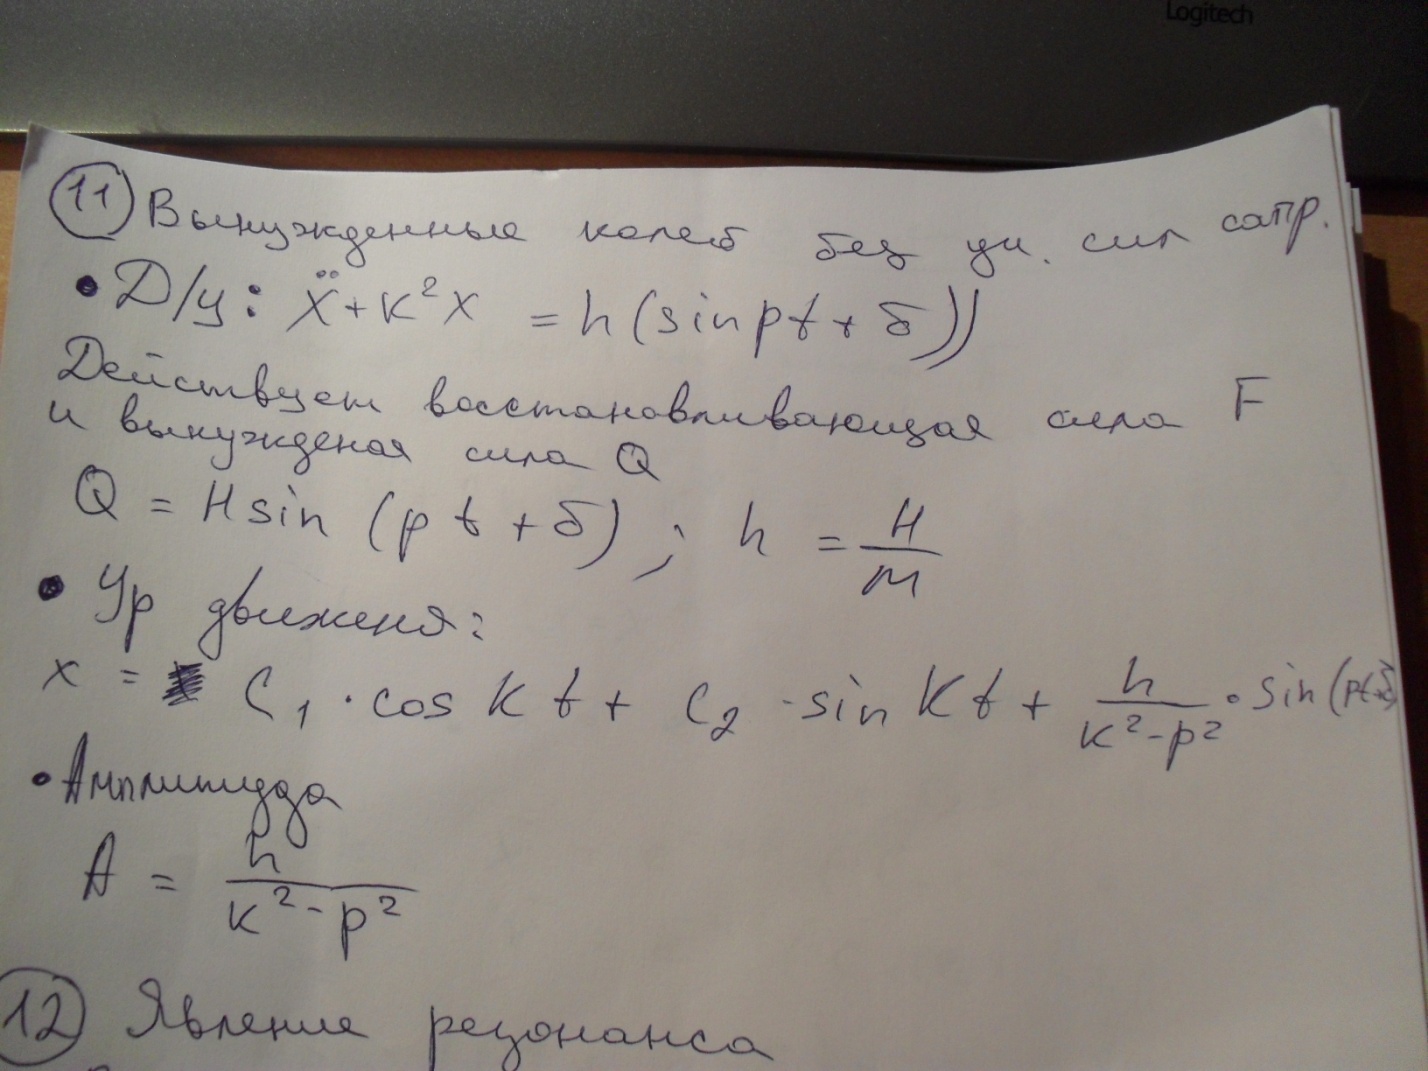 Logitech
11 Вынужденные колеб без уч. сил сопр.
• Д/у: ẍ + k²x = h(sin pt + δ))
Действует восстановливающая сила F
и вынужденая сила Q
Q = H sin (pt + δ) ; h = H/m
• Ур движеня:
x = C₁ · cos kt + C₂ · sin kt + h/(k² - p²) · sin (pt+δ)
• Амплитуда
A = h/(k² - p²)
12 Явление резонанса